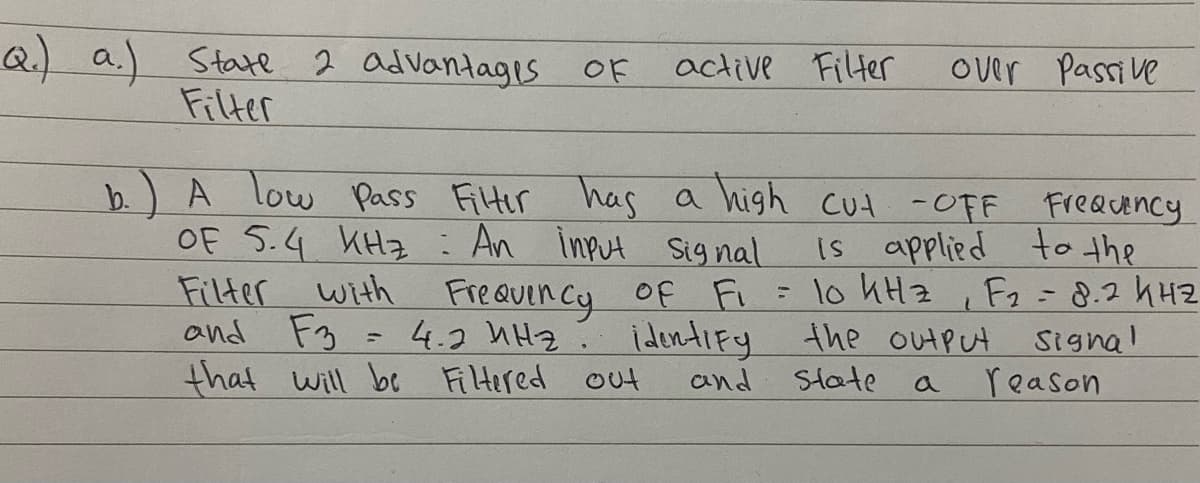 Q.) a.) State 2 advantages OF active Filter over Passive
Filter
b.) A low Pass Filter has a high cut-OFF Frequency
OF 5.4 KHz : An input signal is applied to the
Filter with Frequency OF F1 = 10 kHz , F2 = 8.2 kHz
and F3 = 4.2 kHz . identiFy the output signal
that will be Filtered out and state a reason